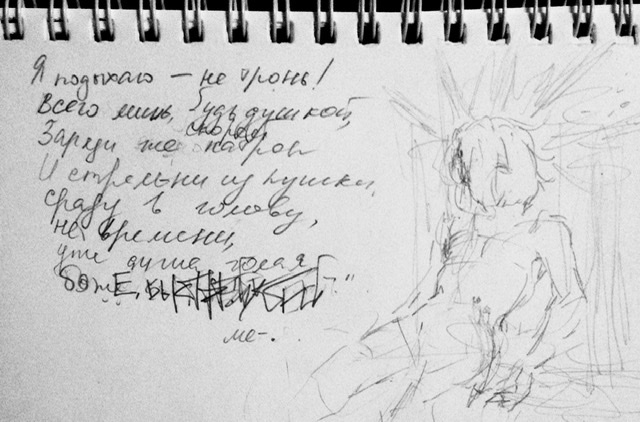 Я подыхаю — не тронь!
Всего лишь, будь душкой,
скорее
Заряди же патрон
И стрельни из пушки,
сразу в голову,
не времени,
уже душа голая
боже,
ме-.